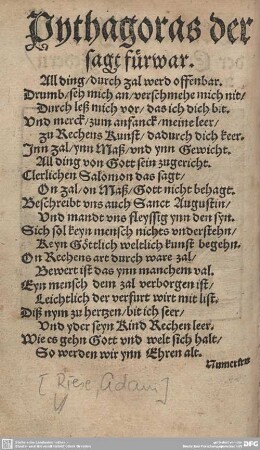 Pythagoras der
sagt fürwar.
All ding / durch zal werd offenbar.
Drumb / seh mich an / verschmehe mich nit /
Durch leß mich vor / das ich dich bit.
Vnd merck / zum anfanck / meine leer /
zu Rechens Kunst / dadurch dich keer.
Jnn Zal / ynn Maß / vnd ynn Gewicht.
All ding von Gott sein zugericht.
Clerlichen Salomon das sagt /
On zal / on Maß / Gott nicht behagt.
Beschreibt vns auch Sanct Augustin /
Vnd mandt vns fleyssig ynn den syn.
Sich sol keyn mensch nichts vnderstehn /
Keyn Göttlich weltlich kunst begehn.
On Rechens art durch ware zal /
Bewert ist das ynn manchem val.
Eyn mensch dem zal verborgen ist /
Leichtlich der verfurt wirt mit list.
Diß nym zu hertzen / bit ich seer /
Vnd yder seyn Kind Rechen leer.
Wie es gehn Gott vnd welt sich halt /
So werden wir ynn Ehren alt.
[Riese, Adam]
DFG